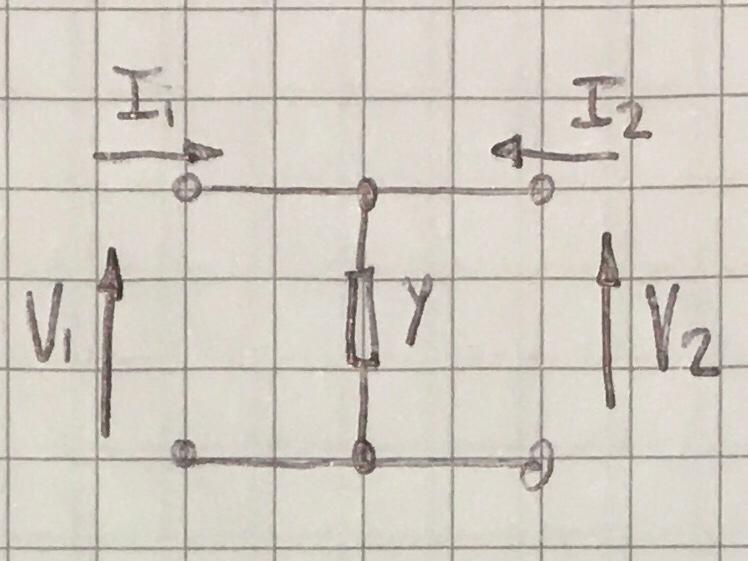 I₁
I₂
V₁
Y
V₂